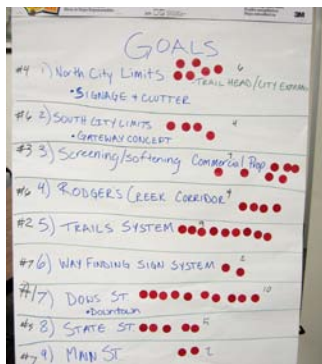 3M
GOALS
#4 1) North City Limits 6
TRAIL HEAD/CITY
• SIGNAGE + CLUTTER
#6 2) SOUTH CITY LIMITS 4
• GATEWAY CONCEPT
#3 3) Screening/softening Commercial Prop 7
#6 4) RODGERS CREEK CORRIDOR 4
#2 5) TRAILS SYSTEM 9
#7 6) WAY FINDING SIGN SYSTEM 2
#1 7) DOWS ST. 10
• Downtown
#5 8) STATE ST. 5
#7 9) MAIN ST 2